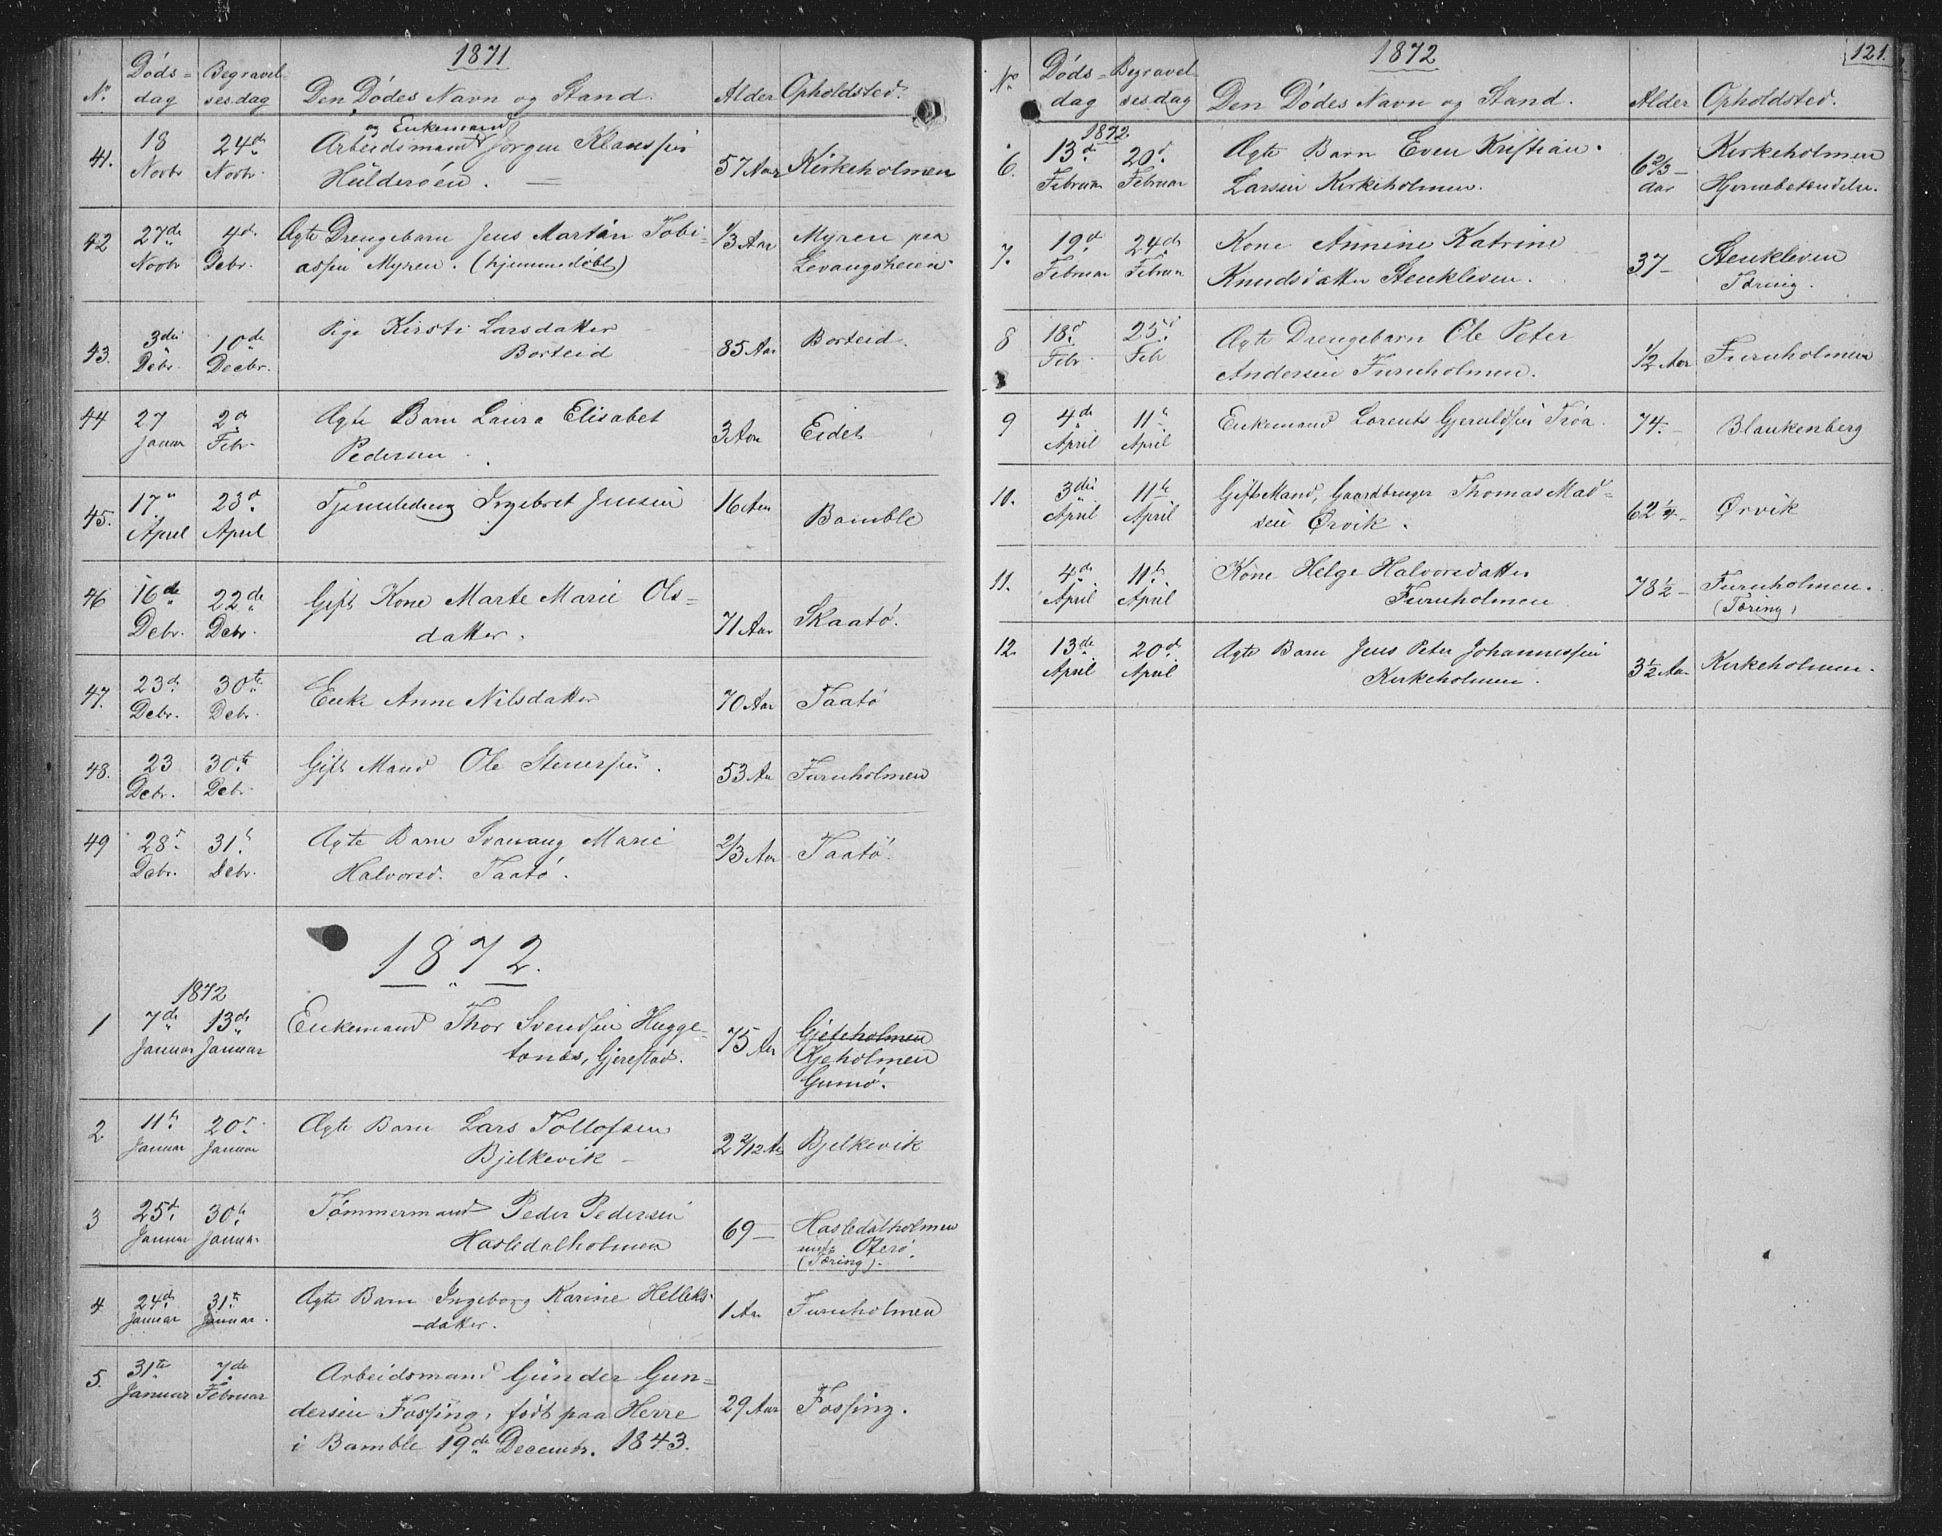 1871
No. Døds-dag Begravelsesdag Den Dødes Navn og Stand. Alder Opholdsted.
og Enkemand
41. 18 Novbr 24de Novbr. Arbeidsmand Jørgen Klaussen
Hülderøen. 57 Aar Kirkeholmen
42 27de Novbr 4de Debr. Ægte Drengebarn Jens Martin Tobi-
assen Myren. (hjemmedøbt) 1/3 Aar Myren paa
Levangsheien.
43. 3die Debr. 10de Decbr. Pige Kirsti Larsdatter
Borteid 85 Aar Borteid.
44 27 Januar 2d Febr. Ægte Barn Laura Elisabet
Pedersen. 3 Aar Eidet
45. 17. April 23d April Tjenestedreng Ingebret Jensen 16 Aar Bamble
46 16de Debr. 22de Debr. Gift Kone Marte Marie Ols-
datter. 71 Aar Skaatø.
47. 23d. Debr. 30te Debr. Enke Anne Nilsdatter 70 Aar Taatø
48. 23 Debr. 30te Debr. Gift Mand Ole Stenersen. 53 Aar Furuholmen
49 28d Debr. 31t. Debr. Ægte Barn Svanaug Marie
Halvorsd. Taatø. 2/3 Aar Taatø.
1872.
1872
1 7de Januar 13de Januar Enkemand Thor Svendsen Hugge-
tones, Gjerestad. 75 Aar Gjeteholmen
Gjeholmen
Gumø.
2 11t. Januar 20d Januar Ægte Barn Lars Tollofsen
Bjelkevik – 2 2/12 A. Bjelkevik
3 25d. Januar 30t. Januar Tømmermand Peder Pedersen
Hasledalholmen 69 – Hasledalholmen
unde Oterø.
(Tæring).
4 24d. Januar 31te Januar. Ægte Barn Ingeborg Karine Helleks-
datter. 1 Aar Furuholmen
5. 31te Januar 7de Februar Arbeidsmand Günder Gun-
dersen Fossing, født paa Herre
i Bamble 19de Decembr. 1843. 29 Aar Fossing.
1872 121.
No Døds-dag Begravelsesdag Den Dødes Navn og Stand. Alder Opholdsted.
1872
6. 13d Februar 20d Februar Ægte Barn Even Kristian
Larsen Kirkeholmen. 6 2/3 – Aar Kirkeholmen
Hjernebetændelse.
7. 19d Februar 24de Februar Kone Annine Katrine
Knudsdatter Stenkleven. 37 – Stenkleven
Tæring.
8 18d. Febr. 25d Feb Ægte Drengebarn Ole Peter
Andersen Furuholmen. 1/2 Aar Furuholmen
9 4de April 11t. April Enkemand Lorents Gjeruldsen Trøa 74. – Blankenberg
10. 3die April 11te April Gift Mand, Gaardbruger Thomas Mad-
sen Ørvik. 62 1/4 – Ørvik
11. 4de April 11t. April Kone Helge Halvorsdatter
Furuholmen 78 1/2 – Furuholmen.
(Tæring)
12. 13de April 20d April Ægte Barn Jens Peter Johannessen
Kirkeholmen. 3 1/2 Aar Kirkeholmen.